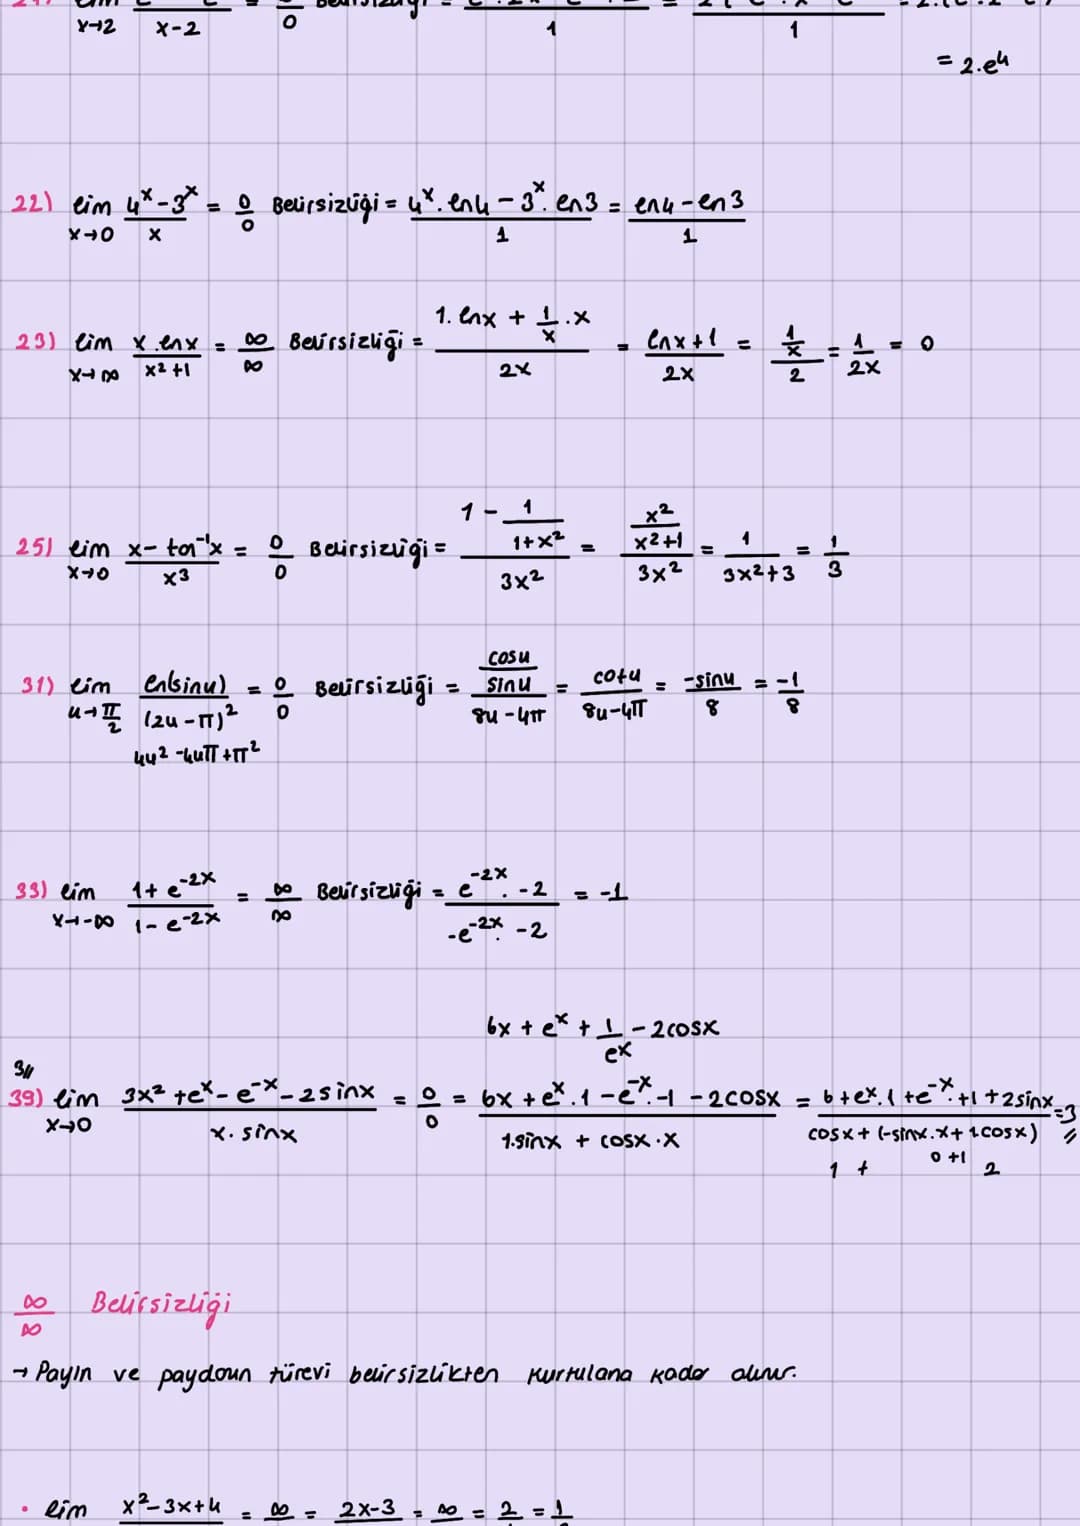 x→2 x-2 0 1 1
= 2.e⁴
22) lim (4^x - 3^x)/x = 0/0 Belirsizliği = (4^x . ln4 - 3^x . ln3)/1 = (ln4 - ln3)/1
x→0
23) lim (x.lnx)/(x²+1) = ∞/∞ Belirsizliği = (1.lnx + 1/x .x)/2x = (lnx+1)/2x = (1/x)/2 = 1/2x = 0
x→∞
25) lim (x - tan⁻¹x)/x³ = 0/0 Belirsizliği = (1 - 1/(1+x²))/3x² = (x²/(x²+1))/3x² = 1/(3x²+3) = 1/3
x→0
31) lim ln(sinu)/(2u-π)² = 0/0 Belirsizliği = (cosu/sinu)/(8u-4π) = cotu/(8u-4π) = -sinu/8 = -1/8
u→π/2
4u² -4uπ +π²
33) lim (1+e^-2x)/(1-e^-2x) = ∞/∞ Belirsizliği = (e^-2x . -2)/(-e^-2x . -2) = -1
x→-∞
6x + e^x + 1/e^x - 2cosx
3//
39) lim (3x² + e^x - e^-x - 2sinx)/(x.sinx) = 0/0 = (6x + e^x.1 - e^-x.-1 - 2cosx)/(1.sinx + cosx.x) = (6 + e^x.1 + e^-x.+1 + 2sinx)/(cosx + (-sinx.x + 1.cosx)) = 3//
x→0
1 + 0+1 2
∞/∞ Belirsizliği
→ Payın ve paydanın türevi belirsizlikten kurtulana kadar alınır.
• lim x²-3x+4 = ∞ = 2x-3 = ∞ = 2 = 1